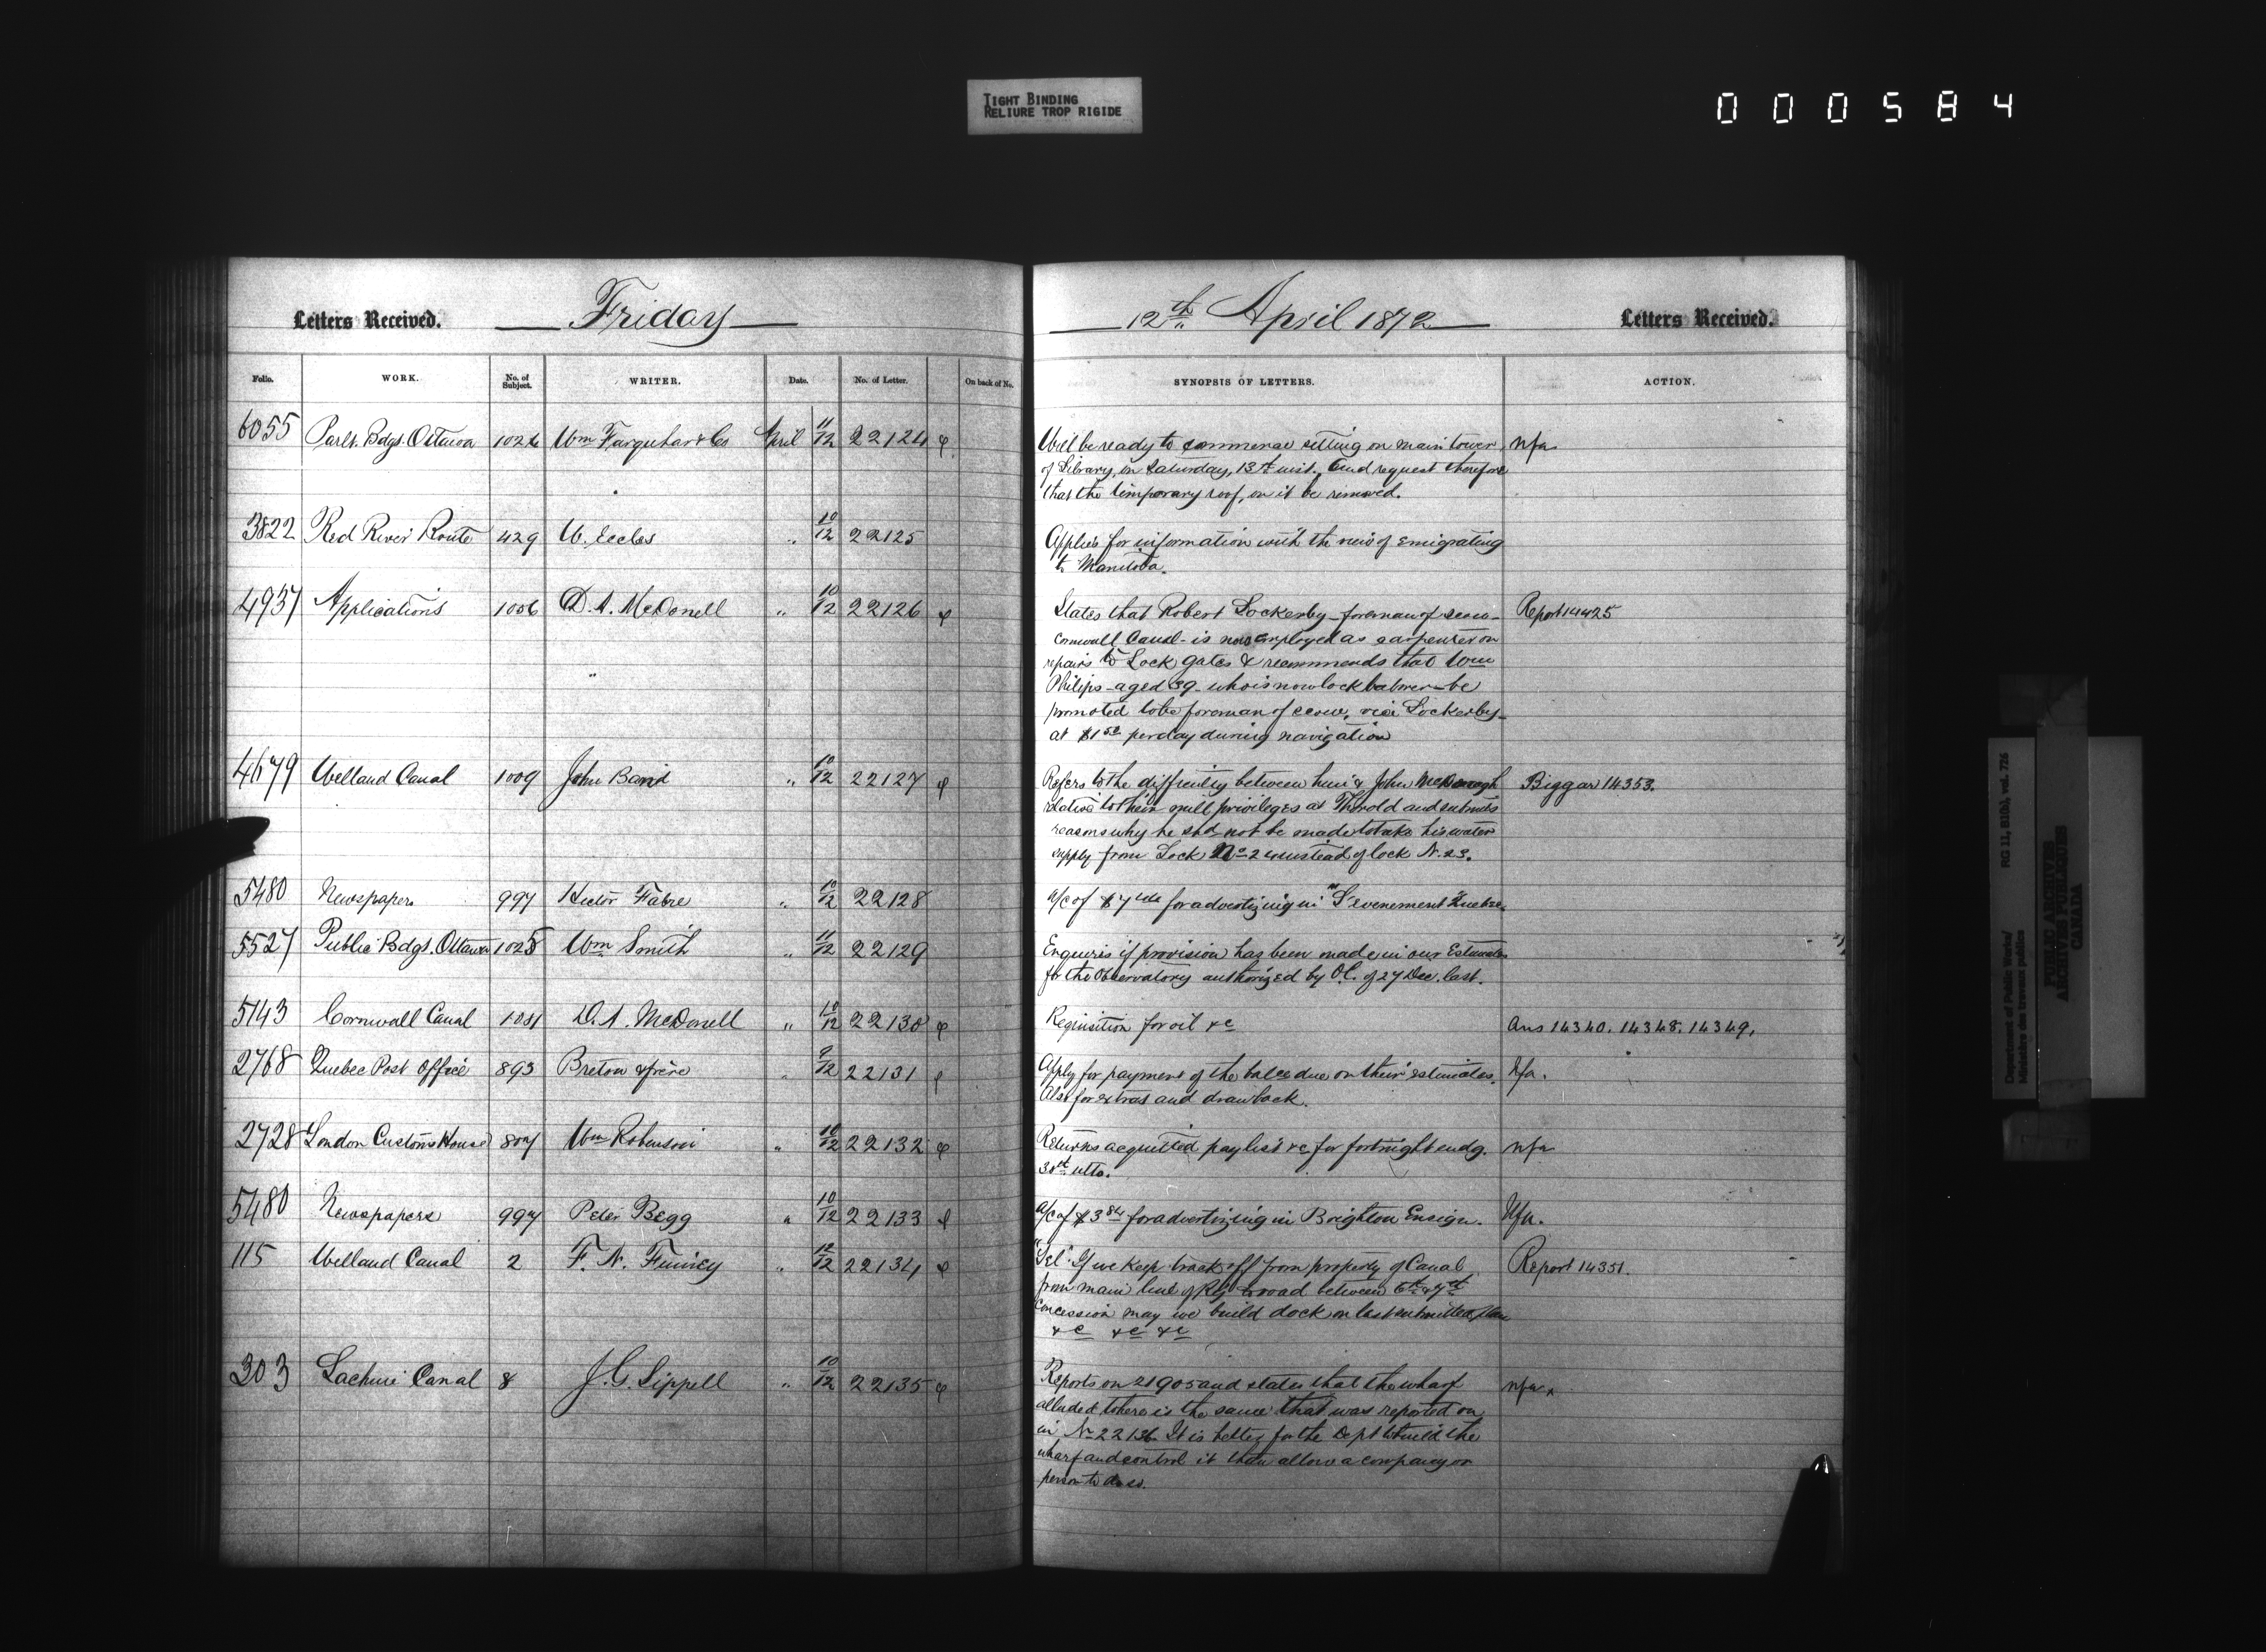 TIGHT BINDING
RELIURE TROP RIGIDE
000584
Letters Received. Friday
12th April 1872 Letters Received.
Folio. WORK. No. of Subject. WRITER. Date. No. of Letter. On back of No.
SYNOPSIS OF LETTERS. ACTION.
6055 Parlt. Bdgs. Ottawa 1026 Wm Farquhar & Co April 11/12 22124
Will be ready to commence setting on main tower nfa
of Library, on Saturday, 13th inst. and request therefore
that the temporary roof, on it be removed.
3822 Red River Route 429 W. Eccles " 10/12 22125
Applies for information with the view of emigrating
to Manitoba.
4957 Applications 1006 D. A. McDonell " 10/12 22126
States that Robert Lockerby - foreman of scow - Report 14425
Cornwall Canal - is now employed as carpenter on
repairs to Lock gates & recommends that Wm
Philips - aged 39 - who is now lock laborer - be
promoted to be foreman of scow, vice Lockerby -
at $1 50 per day during navigation
4679 Welland Canal 1009 John Band " 10/12 22127
Refers to the difficulty between him & John McDonogh Biggar 14353.
relative to their mill privileges at Thorold and submits
reasons why he shd not be made to take his water
supply from Lock No 24 instead of lock N. 23.
5480 Newspapers 997 Hector Fabre " 10/12 22128
a/c of $7 for advertizing in "L'evenement" Quebec.
5527 Public Bdgs. Ottawa 1025 Wm Smith " 11/12 22129
Enquires if provision has been made in our Estimates
for the Observatory authorized by O.C. of 27 Dec. last.
5143 Cornwall Canal 1031 D. A. McDonell " 10/12 22130
Requisition for oil &c Ans 14340. 14348. 14349.
2768 Quebec Post Office 893 Breton & frère " 9/12 22131
Apply for payment of the balce due on their estimates. Nfa.
Also for extras and drawback.
2728 London Customs House 807 Wm Robinson " 10/12 22132
Returns acquitted paylist &c for fortnight endg. nfa
30th ulto.
5480 Newspapers 997 Peter Begg " 10/12 22133
a/c of $3 84 for advertizing in Brighton Ensign. Nfa.
115 Welland Canal 2 F. N. Finney " 12/12 22134
"Tel". If we keep track off from property of Canal Report 14351.
from main line of Rly broad between 6th & 7th
Concession may we build dock on last submitted plan
&c &c &c
303 Lachine Canal 8 J. G. Sippell " 10/12 22135
Reports on 21905 and states that the wharf nfa.
alluded to here is the same that was reported on
in No 22136. It is better for the Dept to build the
wharf and control it than allow a company or
person to do so.
Department of Public Works/ RG 11, B1(b), vol. 726
Ministère des travaux publics
PUBLIC ARCHIVES
ARCHIVES PUBLIQUES
CANADA